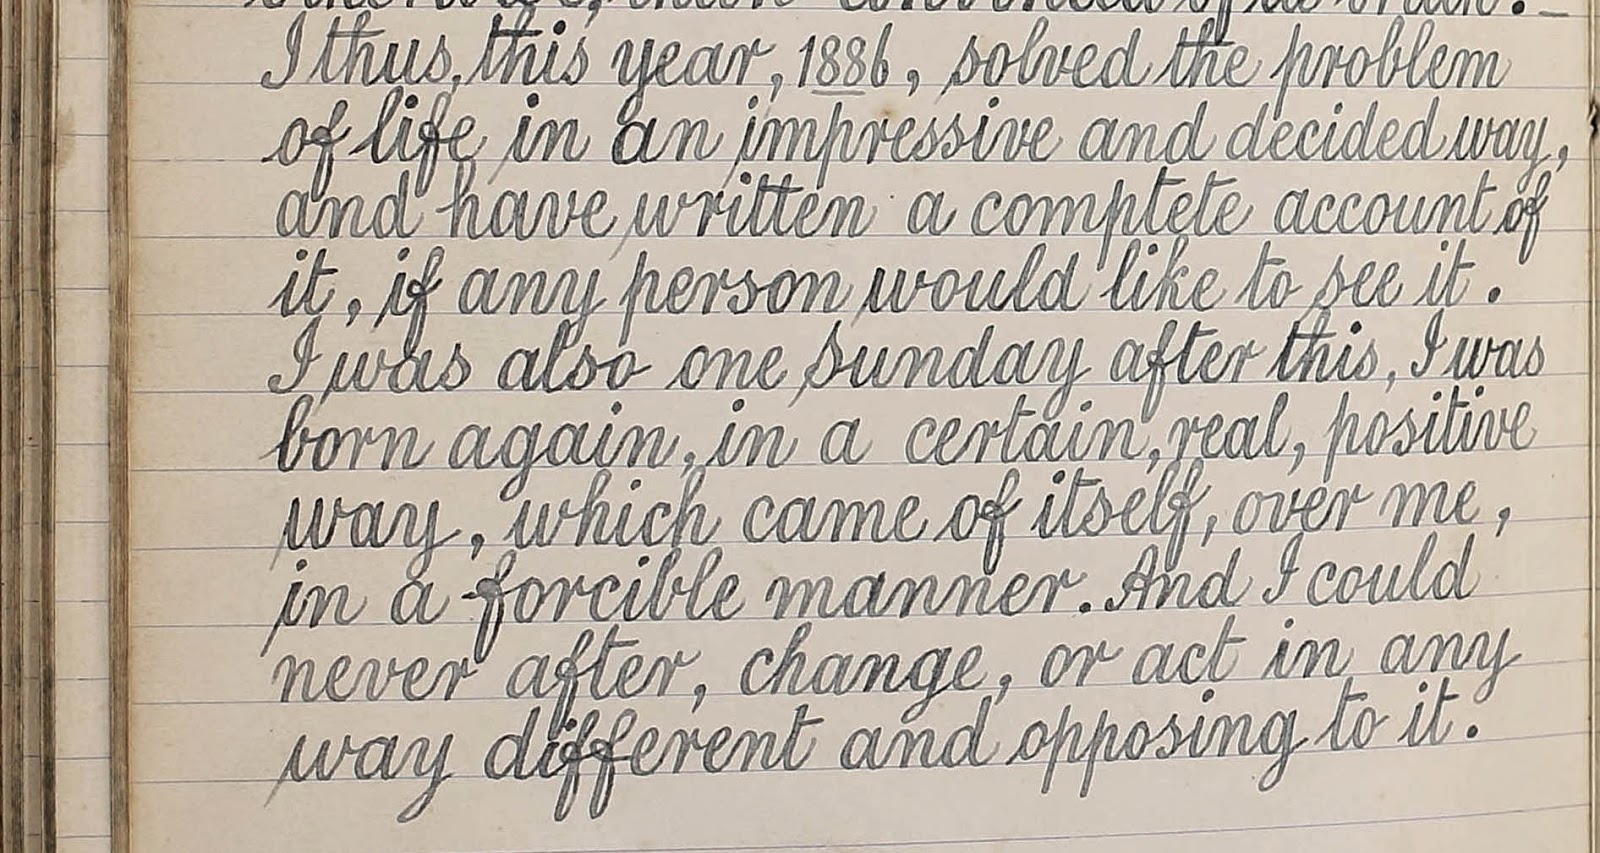 I thus, this year, 1886, solved the problem
of life in an impressive and decided way,
and have written a complete account of
it, if any person would like to see it.
I was also one Sunday after this, I was
born again, in a certain, real, positive
way, which came of itself, over me,
in a forcible manner. And I could
never after, change, or act in any
way different and opposing to it.